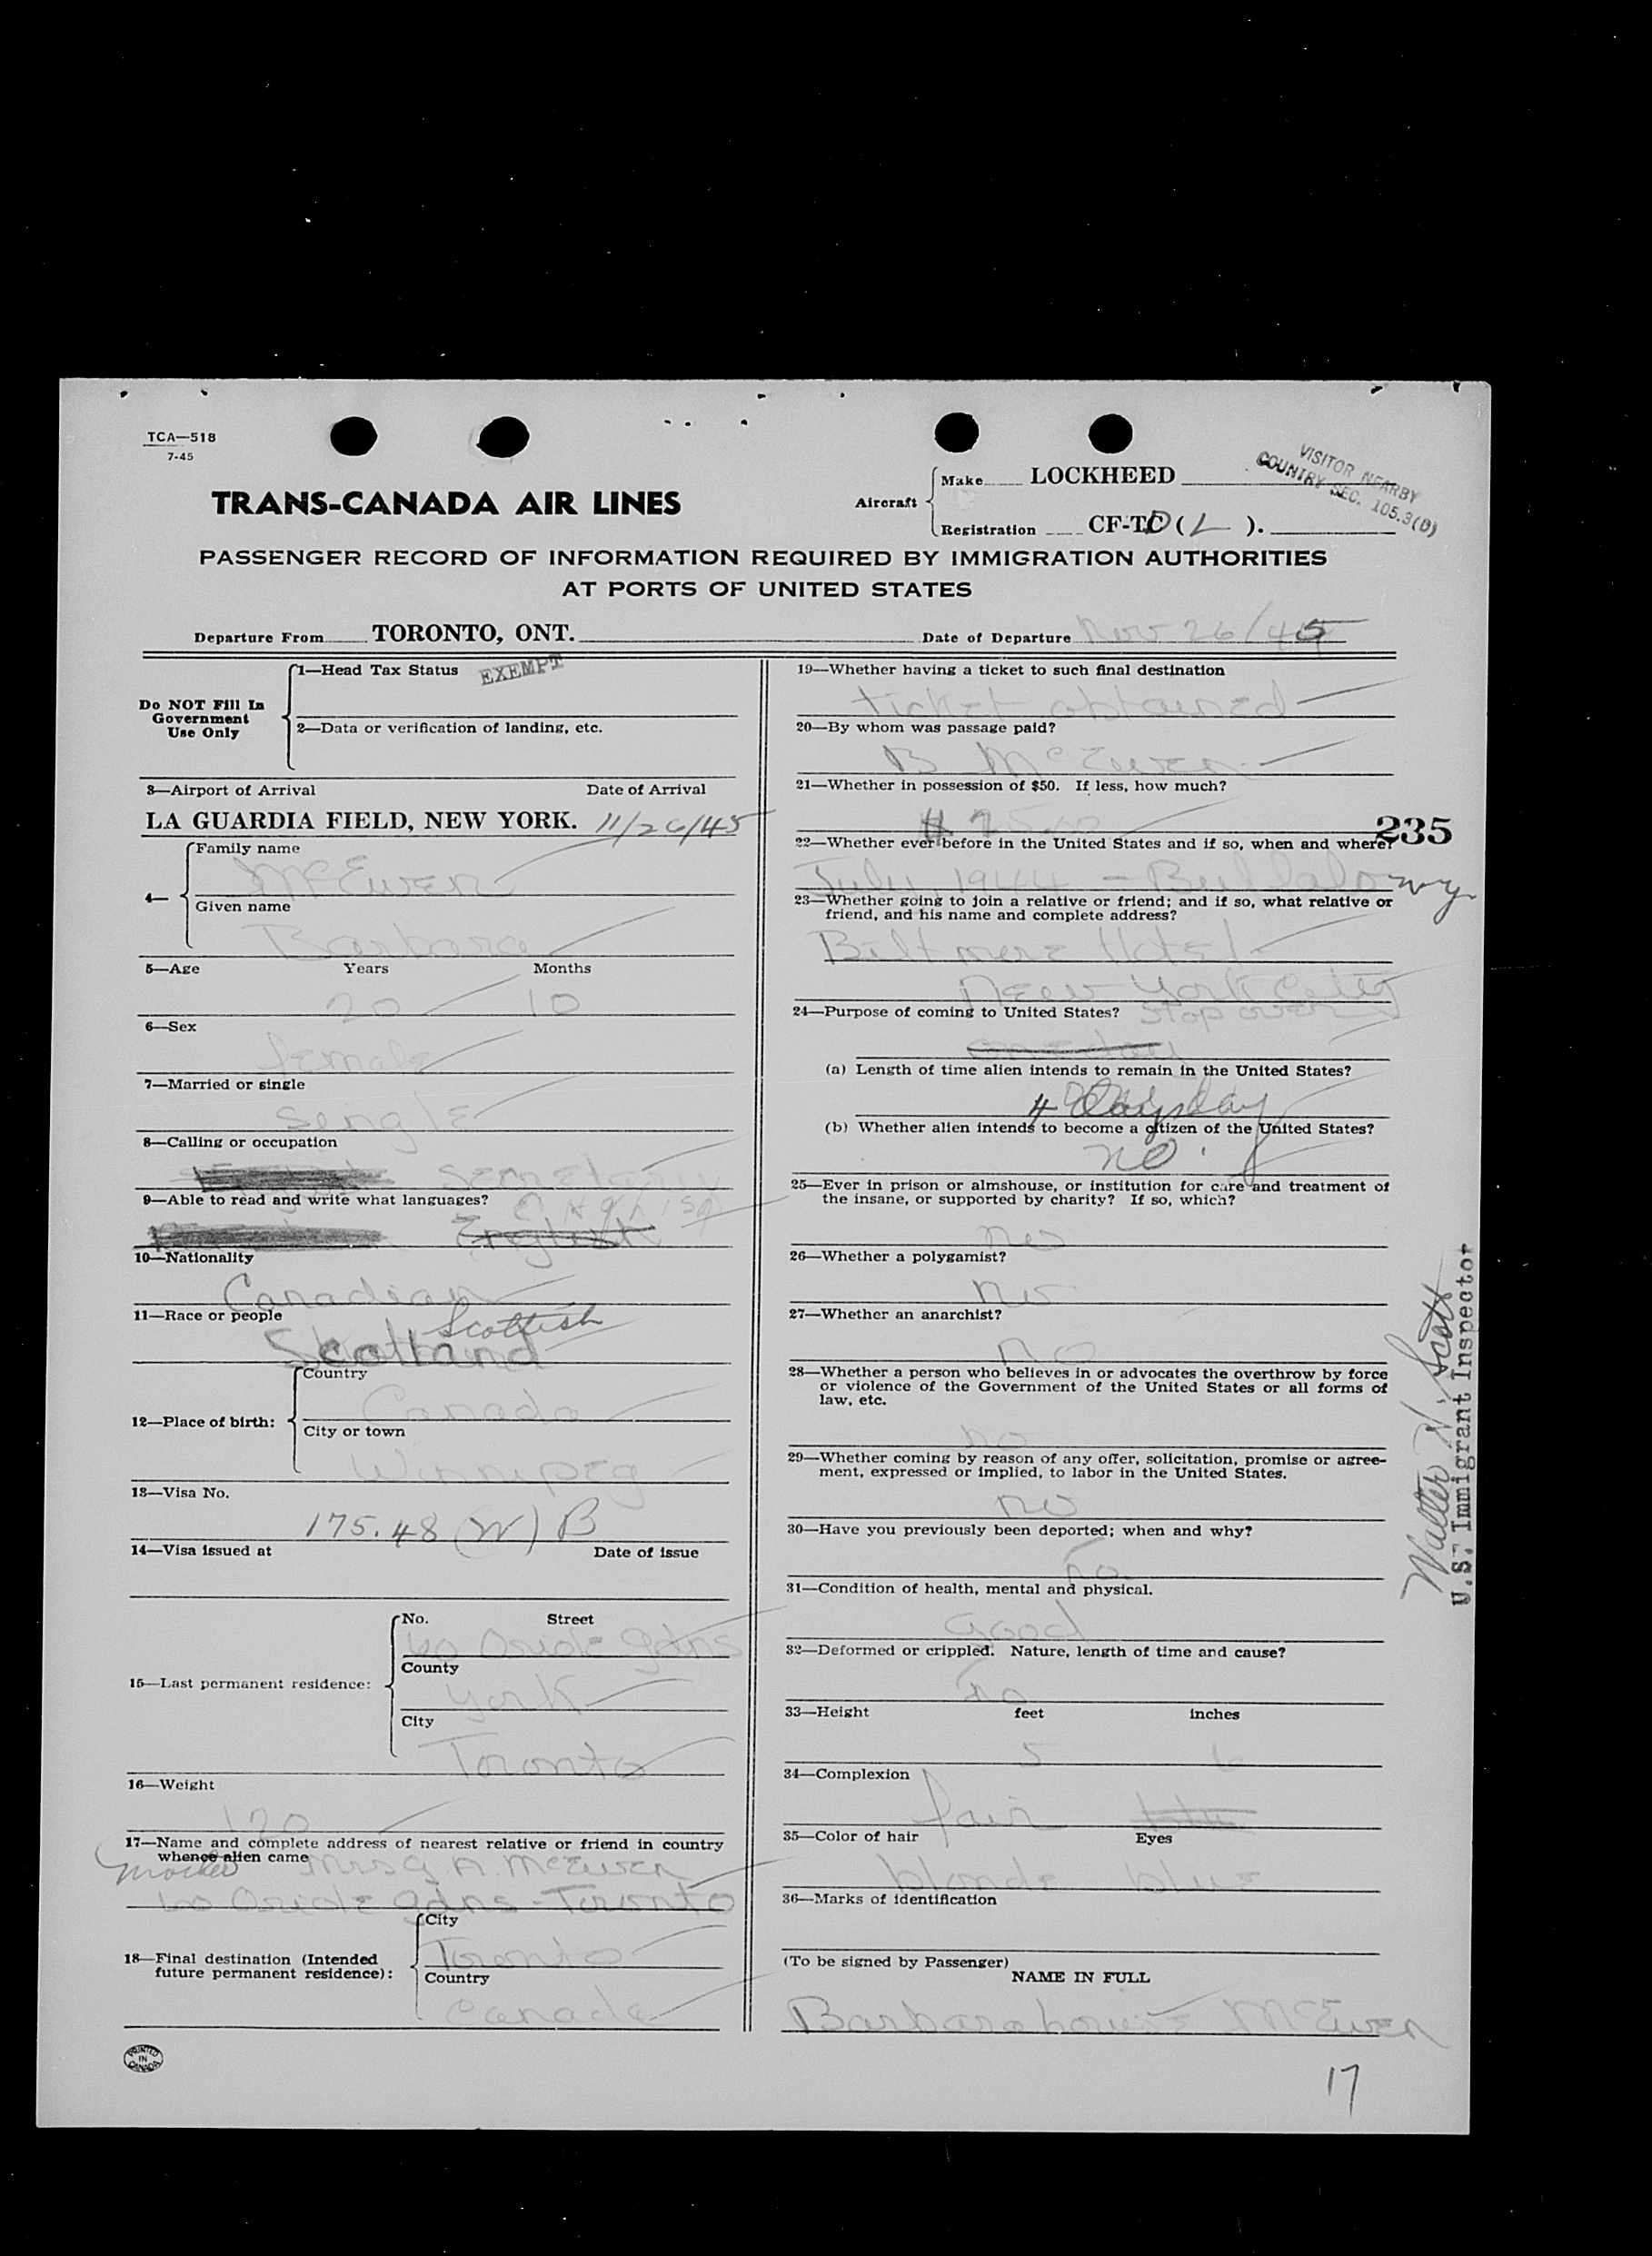 TCA—518
7-45
TRANS-CANADA AIR LINES
Aircraft
Make LOCKHEED
Registration CF-TCD ( L ).
VISITOR NEARBY
COUNTRY SEC. 105.3(B)
PASSENGER RECORD OF INFORMATION REQUIRED BY IMMIGRATION AUTHORITIES
AT PORTS OF UNITED STATES
Departure From TORONTO, ONT. Date of Departure Nov 26/45
Do NOT Fill In
Government
Use Only
1—Head Tax Status EXEMPT
2—Data or verification of landing, etc.
3—Airport of Arrival Date of Arrival
LA GUARDIA FIELD, NEW YORK. 11/26/45
4—
Family name
McEwen
Given name
Barbara
5—Age Years Months
20 10
6—Sex
female
7—Married or single
single
8—Calling or occupation
9—Able to read and write what languages?
English
English
10—Nationality
Canadian
11—Race or people
Scottish
Scotland
12—Place of birth:
Country
Canada
City or town
Winnipeg
13—Visa No.
175.48 (W) B
14—Visa issued at Date of issue
15—Last permanent residence:
No. Street
60 Oriole Gdns
County
York
City
Toronto
16—Weight
120
17—Name and complete address of nearest relative or friend in country
whence alien came
mother Mrs G A. McEwen
60 Oriole Gdns - Toronto
18—Final destination (Intended
future permanent residence):
City
Toronto
Country
Canada
PRINTED
IN
CANADA
19—Whether having a ticket to such final destination
ticket obtained
20—By whom was passage paid?
B McEwen
21—Whether in possession of $50. If less, how much?
235
22—Whether ever before in the United States and if so, when and where?
July, 1944 - Buffalo NY
23—Whether going to join a relative or friend; and if so, what relative or
friend, and his name and complete address?
Biltmore Hotel
New York City
24—Purpose of coming to United States? stop over
one day
(a) Length of time alien intends to remain in the United States?
(b) Whether alien intends to become a citizen of the United States?
no.
25—Ever in prison or almshouse, or institution for care and treatment of
the insane, or supported by charity? If so, which?
no
26—Whether a polygamist?
no
27—Whether an anarchist?
no
28—Whether a person who believes in or advocates the overthrow by force
or violence of the Government of the United States or all forms of
law, etc.
no
29—Whether coming by reason of any offer, solicitation, promise or agree-
ment, expressed or implied, to labor in the United States.
no
30—Have you previously been deported; when and why?
no
31—Condition of health, mental and physical.
Good
32—Deformed or crippled. Nature, length of time and cause?
no
33—Height feet inches
5 6
34—Complexion
fair
35—Color of hair Eyes
blonde blue
36—Marks of identification
(To be signed by Passenger)
NAME IN FULL
Barbara Louise McEwen
17
Walter N. Scott
U.S. Immigrant Inspector